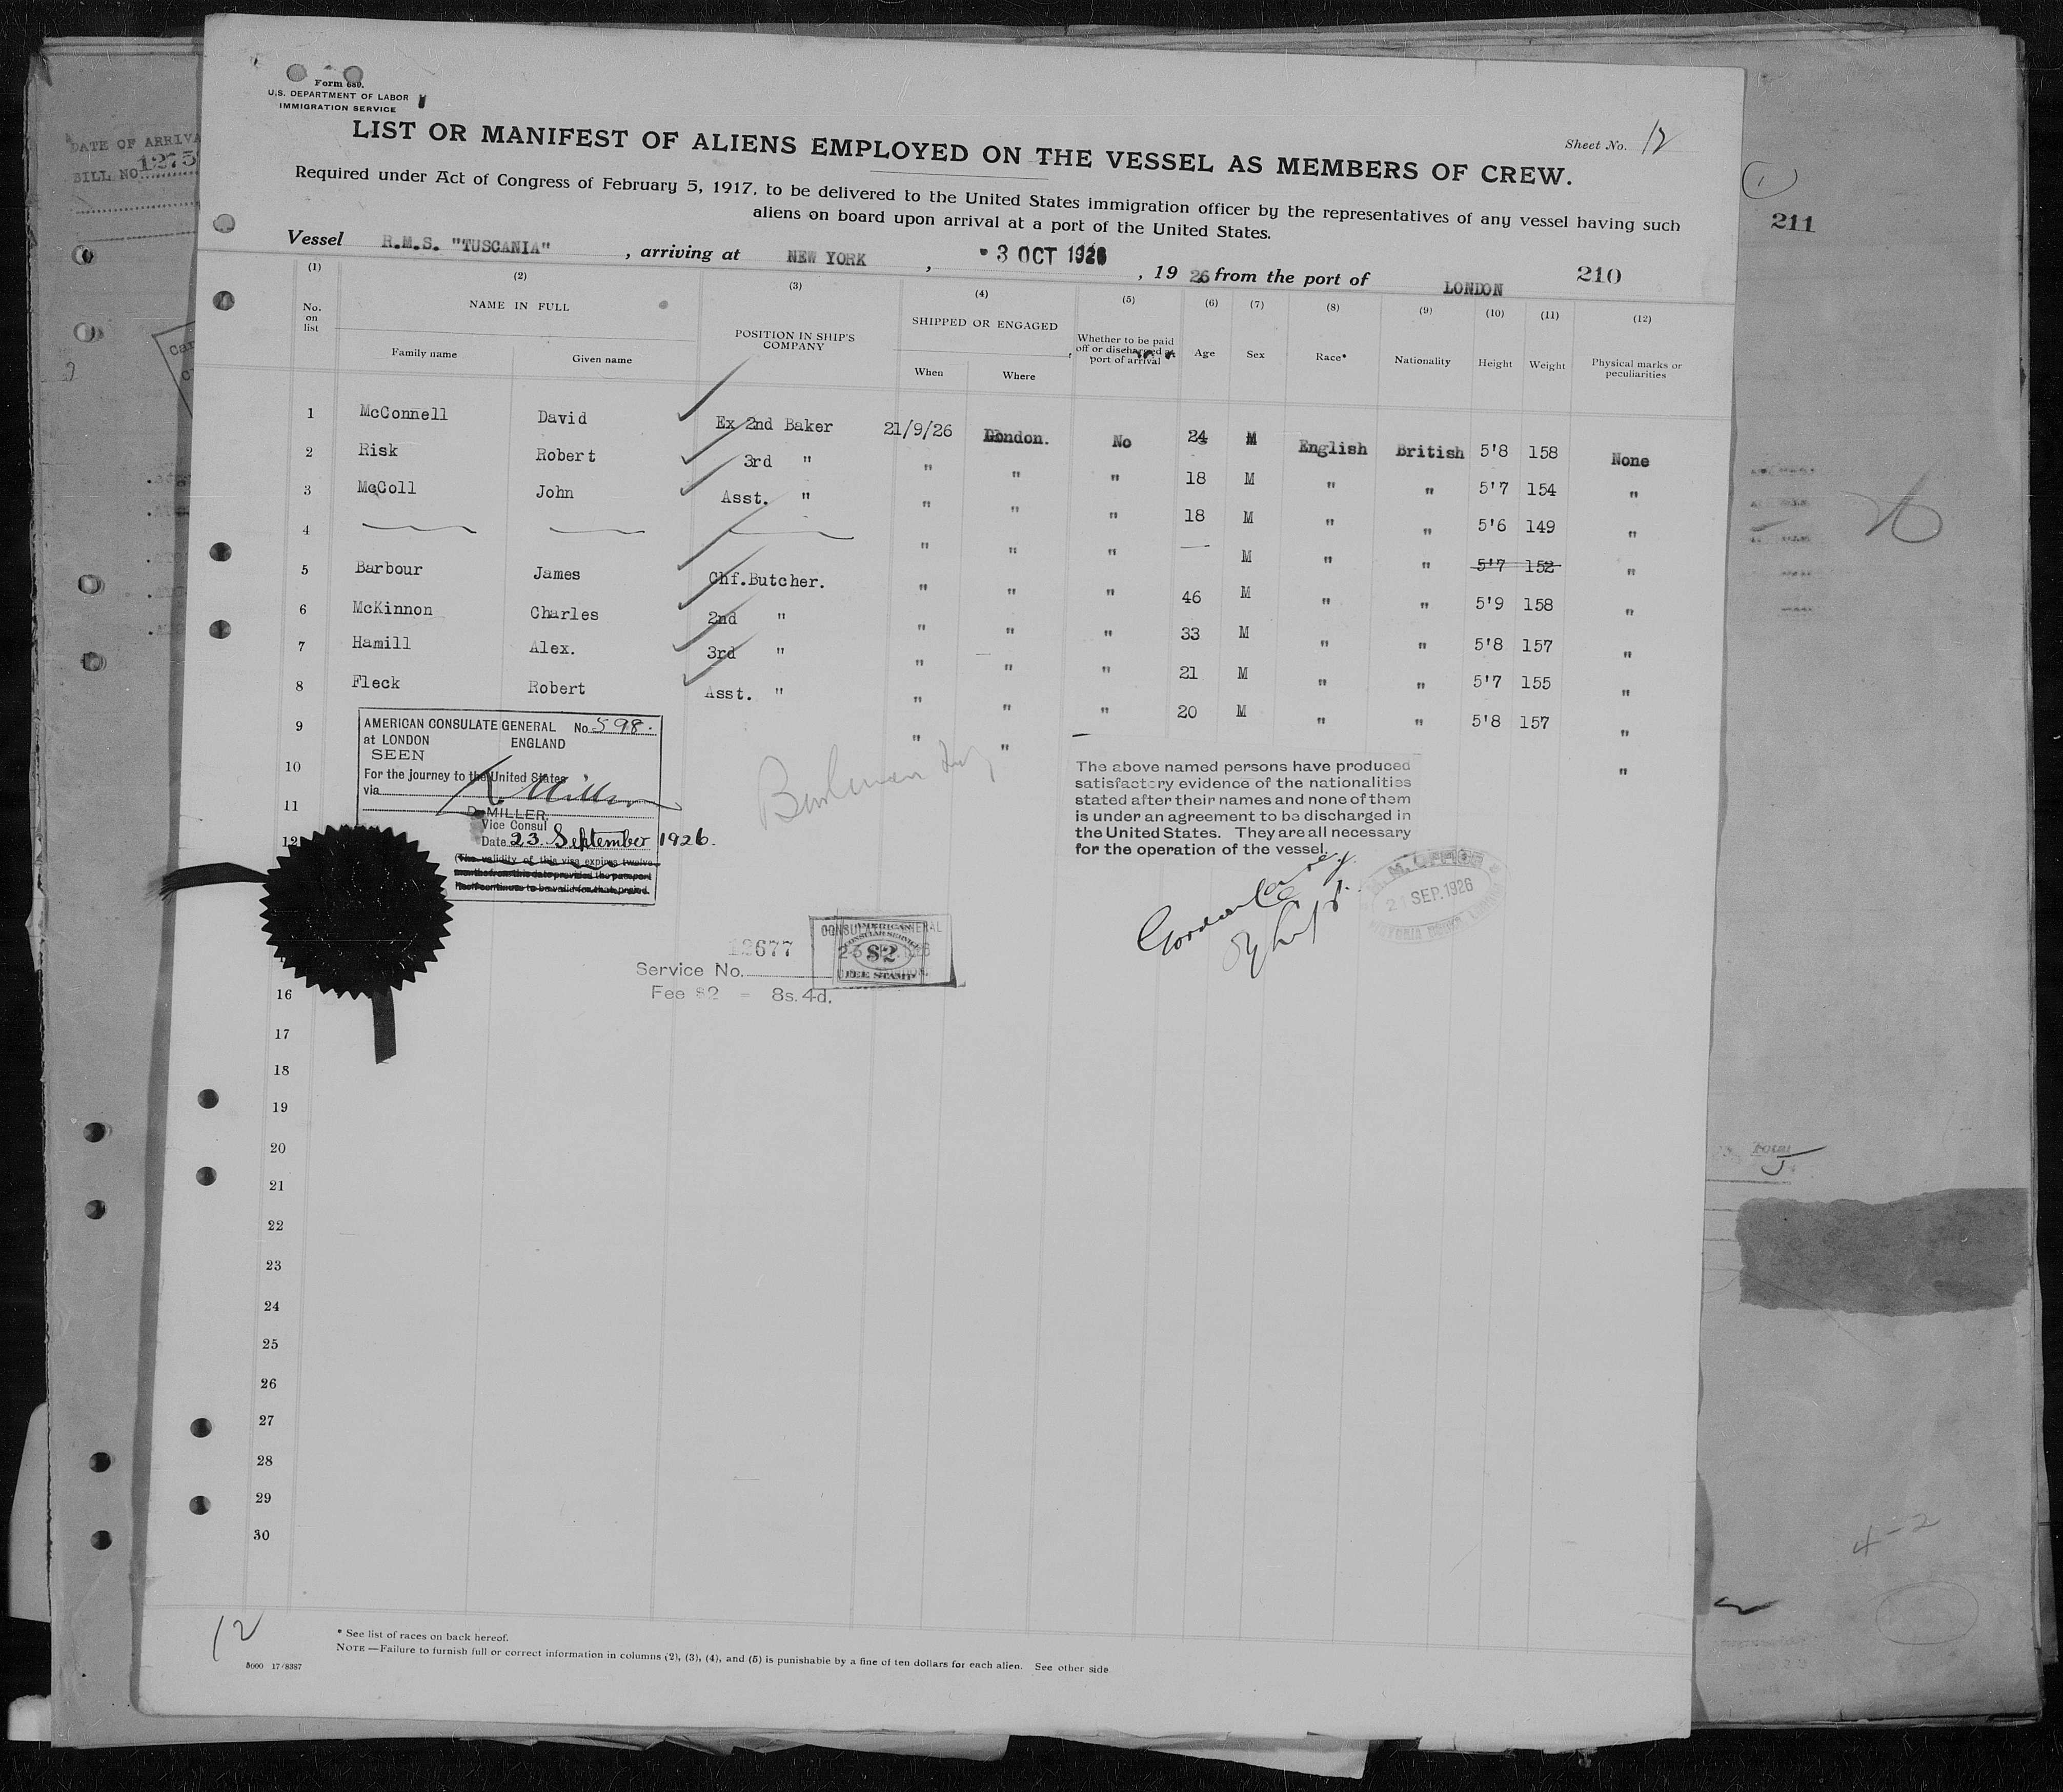 Form 689.
U.S. DEPARTMENT OF LABOR
IMMIGRATION SERVICE
LIST OR MANIFEST OF ALIENS EMPLOYED ON THE VESSEL AS MEMBERS OF CREW.
Sheet No. 12
Required under Act of Congress of February 5, 1917, to be delivered to the United States immigration officer by the representatives of any vessel having such
aliens on board upon arrival at a port of the United States.
Vessel R.M.S. "TUSCANIA" , arriving at NEW YORK , 3 OCT 1926 , 19 26 from the port of LONDON
210
211
DATE OF ARRIVA
BILL NO. 1275
(1) (2) (3) (4) (5) (6) (7) (8) (9) (10) (11) (12)
No. on list NAME IN FULL POSITION IN SHIP'S COMPANY SHIPPED OR ENGAGED Whether to be paid off or discharged at port of arrival Age Sex Race* Nationality Height Weight Physical marks or peculiarities
Family name Given name When Where
1 McConnell David Ex 2nd Baker 21/9/26 London. No 24 M English British 5'8 158 None
2 Risk Robert 3rd " " " " 18 M " " 5'7 154 "
3 McColl John Asst. " " " " 18 M " " 5'6 149 "
4 — — — " " " — M " " 5'7 152 "
5 Barbour James Chf.Butcher. " " " 46 M " " 5'9 158 "
6 McKinnon Charles 2nd " " " " 33 M " " 5'8 157 "
7 Hamill Alex. 3rd " " " " 21 M " " 5'7 155 "
8 Fleck Robert Asst. " " " " 20 M " " 5'8 157 "
9 " " "
10
11
12
AMERICAN CONSULATE GENERAL No 598.
at LONDON ENGLAND
SEEN
For the journey to the United States
via
D. MILLER.
Vice Consul
Date 23 September 1926.
(The validity of this visa expires twelve
months from this date provided the passport
itself continues to be valid for that period.
The above named persons have produced
satisfactory evidence of the nationalities
stated after their names and none of them
is under an agreement to be discharged in
the United States. They are all necessary
for the operation of the vessel.
M. M. OFFICE
21 SEP. 1926
CONSULATE GENERAL
AMERICAN
CONSULAR SERVICE
$2
FEE STAMP
Service No. 12677
Fee $2 = 8s. 4d.
16
17
18
19
20
21
22
23
24
25
26
27
28
29
30
Total
4-2
12
* See list of races on back hereof.
NOTE—Failure to furnish full or correct information in columns (2), (3), (4), and (5) is punishable by a fine of ten dollars for each alien. See other side
5000 17/8387